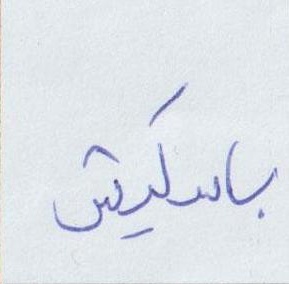 باسکیش